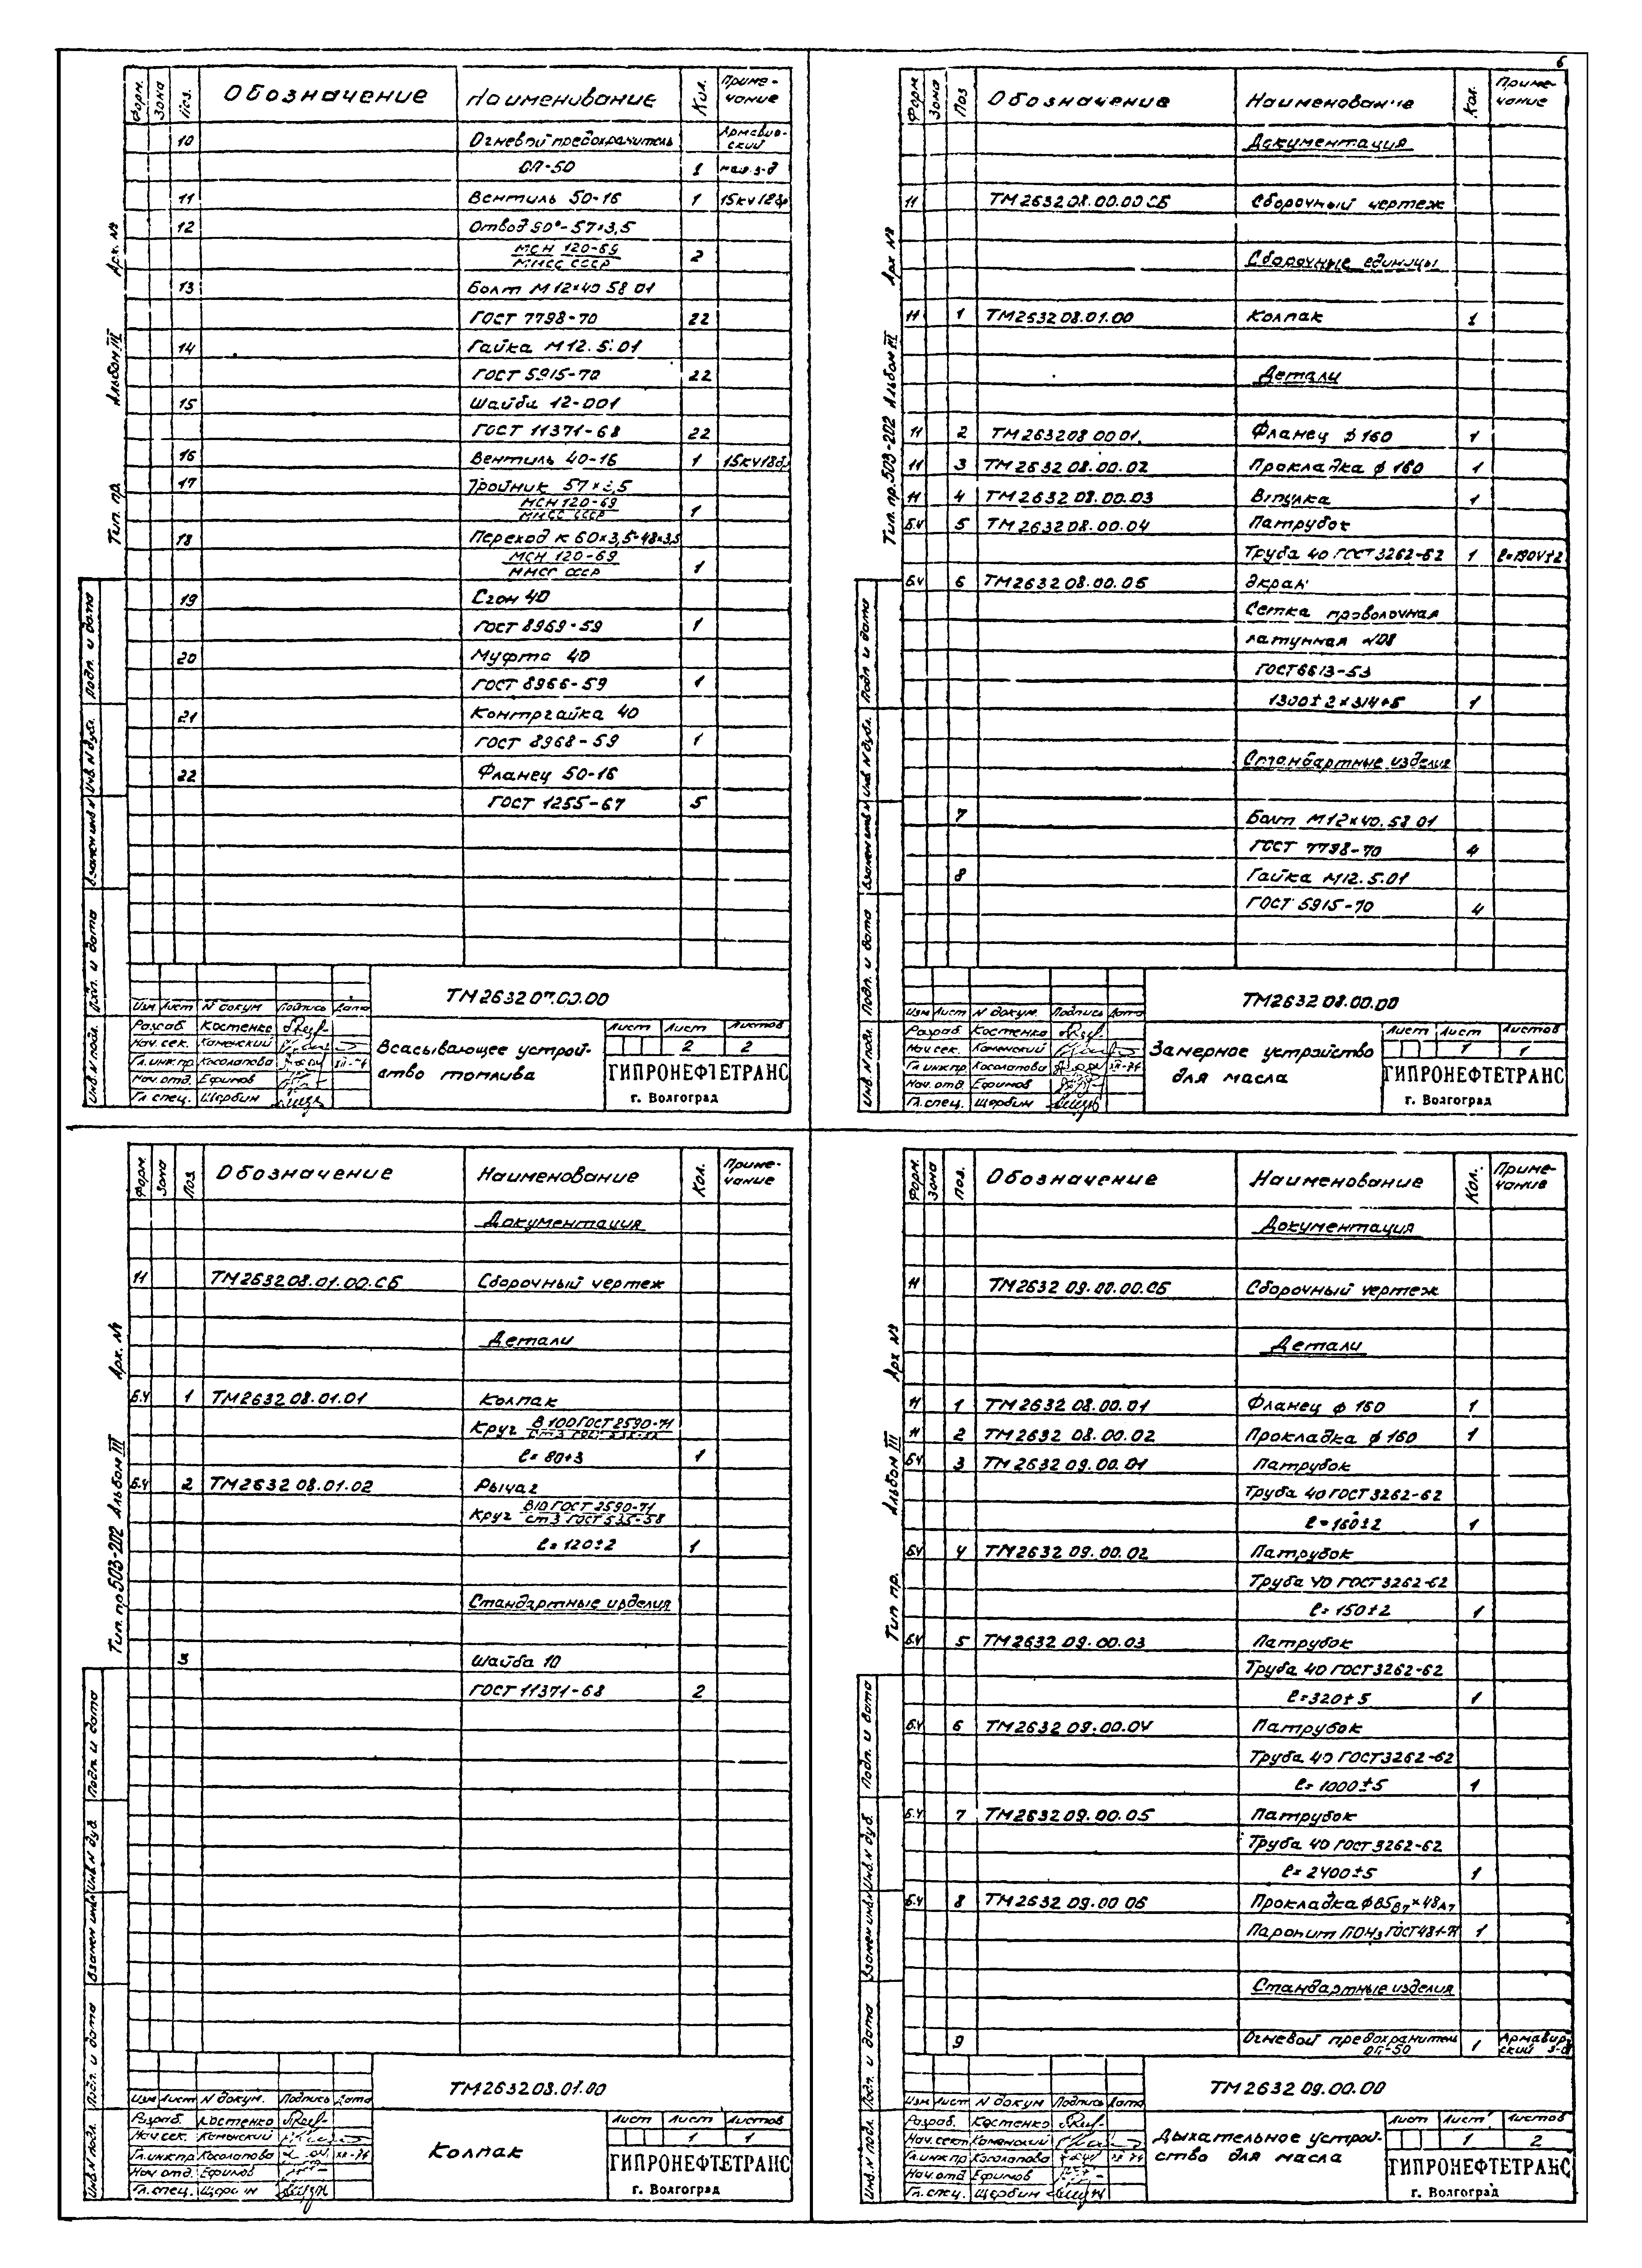 6
Форм. Зона Поз. Обозначение Наименование Кол. Приме-
чание
10 Огневой предохранитель Армавир-
ский
ОП-50 1 маш. з-д
11 Вентиль 50-16 1 15кч18бр
12 Отвод 90°-57×3,5
МСН 120-69
ММСС СССР 2
13 Болт М12×40 58 01
ГОСТ 7798-70 22
14 Гайка М12.5.01
ГОСТ 5915-70 22
15 Шайба 12-001
ГОСТ 11371-68 22
16 Вентиль 40-16 1 15кч18бр
17 Тройник 57×3,5
МСН 120-69
ММСС СССР 1
18 Переход К 60×3,5-48×3,5
МСН 120-69
ММСС СССР 1
19 Сгон 40
ГОСТ 8969-59 1
20 Муфта 40
ГОСТ 8966-59 1
21 Контргайка 40
ГОСТ 8968-59 1
22 Фланец 50-16
ГОСТ 1255-67 5
Тип. пр. Альбом III Арх. №
Инв. N подл. Подп. и дата Взамен инв. N Инв. N дубл. Подп. и дата
ТМ2632 07.00.00
Изм Лист N докум Подпись Дата
Разраб. Костенко
Нач. сек. Каменский
Гл. инж. пр Косолапова
Нач. отд. Ефимов
Гл. спец. Щербин
Всасывающее устрой-
ство топлива
Лист Лист Листов
2 2
ГИПРОНЕФТЕТРАНС
г. Волгоград
Форм Зона Поз Обозначение Наименование Кол. Приме-
чание
Документация
11 ТМ2632 08.00.00 СБ Сборочный чертеж
Сборочные единицы
11 1 ТМ2632 08.01.00 Колпак 1
Детали
11 2 ТМ2632 08 00 01 Фланец ф 160 1
11 3 ТМ 2632 08.00.02 Прокладка ф 160 1
11 4 ТМ 2632 08.00.03 Втулка 1
Б.Ч 5 ТМ 2632 08.00.04 Патрубок
Труба 40 ГОСТ 3262-62 1
Б.Ч 6 ТМ2632 08.00.05 Экран
Сетка проволочная
латунная N08
ГОСТ 6613-53
1300±2×314±5 1
Стандартные изделия
7 Болт М12×40.58.01
ГОСТ 7798-70 4
8 Гайка М12.5.01
ГОСТ 5915-70 4
Тип. пр. 503-202 Альбом III Арх №
Инв. N подл. Подп. и дата Взамен инв. N Инв. N дубл. Подп и дата
ТМ2632 08.00.00
Изм Лист N докум. Подпись Дата
Разраб. Костенко
Нач. сек. Каменский
Гл инж пр Косолапова
Нач. отд. Ефимов
Гл. спец. Щербин
Замерное устройство
для масла
Лист Лист Листов
1 1
ГИПРОНЕФТЕТРАНС
г. Волгоград
Форм. Зона Поз Обозначение Наименование Кол. Приме-
чание
Документация
11 ТМ2632 08.01.00.СБ Сборочный чертеж
Детали
Б.Ч 1 ТМ2632 08.01.01 Колпак
Круг В 100 ГОСТ 2590-71
Ст 3 ГОСТ 535-58
ℓ= 80±3 1
Б.Ч 2 ТМ2632 08.01.02 Рычаг
Круг В10 ГОСТ 2590-71
Ст 3 ГОСТ 535-58
ℓ= 120±2 1
Стандартные изделия
3 Шайба 10
ГОСТ 11371-68 2
Тип. пр 503-202 Альбом III Арх. №
Инв. N подл. Подп. и дата Взамен инв. N Инв. N дуб. Подп. и дата
ТМ2632 08.01.00
Изм Лист N докум. Подпись Дата
Разраб. Костенко
Нач сек. Каменский
Гл. инж пр Косолапова
Нач. отд. Ефимов
Гл. спец. Щербин
Колпак
Лист Лист Листов
1 1
ГИПРОНЕФТЕТРАНС
г. Волгоград
Форм. Зона Поз. Обозначение Наименование Кол. Приме-
чание
Документация
11 ТМ2632 09.00.00.СБ Сборочный чертеж
Детали
11 1 ТМ2632 08.00.01 Фланец ф 160 1
11 2 ТМ2632 08.00.02 Прокладка ф 160 1
Б.Ч 3 ТМ 2632 09.00.01 Патрубок
Труба 40 ГОСТ 3262-62
ℓ= 160±2 1
Б.Ч 4 ТМ2632 09.00.02 Патрубок
Труба 40 ГОСТ 3262-62
ℓ= 150±2 1
Б.Ч 5 ТМ2632 09.00.03 Патрубок
Труба 40 ГОСТ 3262-62
ℓ=320±5 1
Б.Ч 6 ТМ2632 09.00.04 Патрубок
Труба 40 ГОСТ 3262-62
ℓ= 1000±5 1
Б.Ч 7 ТМ2632 09.00.05 Патрубок
Труба 40 ГОСТ 3262-62
ℓ= 2400±5 1
Б.Ч 8 ТМ2632 09.00 06 Прокладка ф 85В7×48А7
Паронит ПОН3 ГОСТ 481-71 1
Стандартные изделия
9 Огневой предохранитель
ОП-50 1 Армавир-
ский з-д
Тип. пр. Альбом III Арх №
Инв. N подл. Подп. и дата Взамен инв. N Инв. N дуб. Подп. и дата
ТМ2632 09.00.00
Изм Лист N докум Подпись Дата
Разраб. Костенко
Нач. сект Каменский
Гл. инж пр Косолапова
Нач. отд Ефимов
Гл. спец. Щербин
Дыхательное устрой-
ство для масла
Лист Лист Листов
1 2
ГИПРОНЕФТЕТРАНС
г. Волгоград